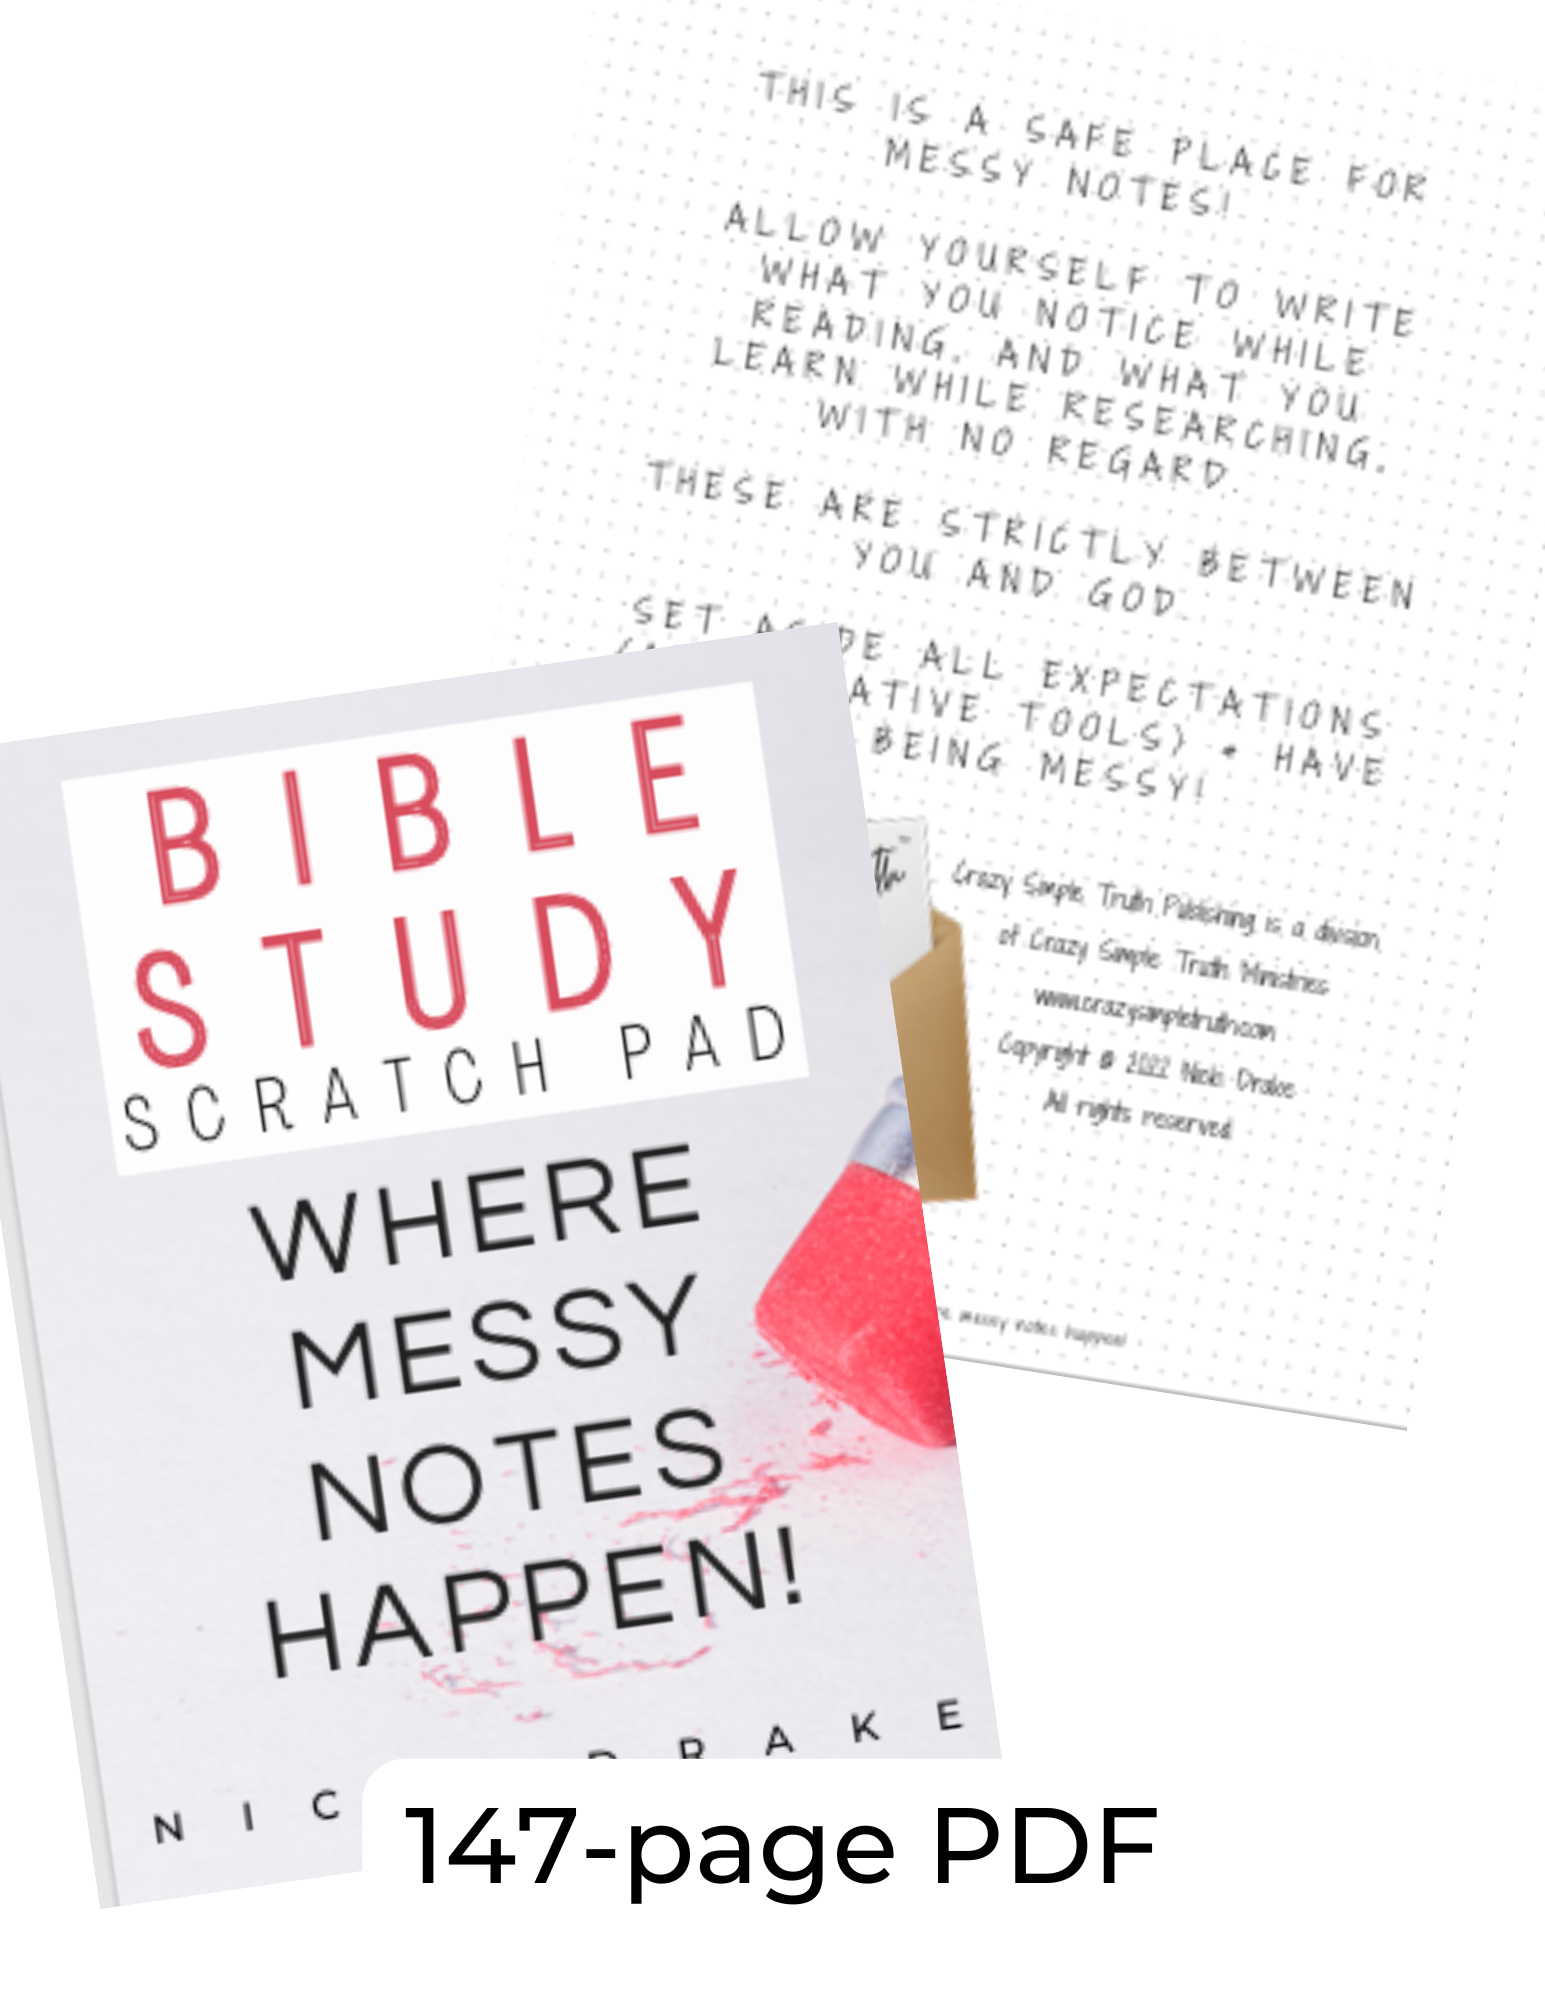 THIS IS A SAFE PLACE FOR
MESSY NOTES!
ALLOW YOURSELF TO WRITE
WHAT YOU NOTICE WHILE
READING. AND WHAT YOU
LEARN WHILE RESEARCHING.
WITH NO REGARD.
THESE ARE STRICTLY BETWEEN
YOU AND GOD.
SET ASIDE ALL EXPECTATIONS
TOOLS) + HAVE
BEING MESSY!
Crazy Simple Truth Publishing is a division
of Crazy Simple Truth Ministries
www.crazysimpletruth.com
Copyright © 2022 Nicki Drake
All rights reserved
messy notes happen!
BIBLE
STUDY
SCRATCH PAD
WHERE
MESSY
NOTES
HAPPEN!
DRAKE
147-page PDF